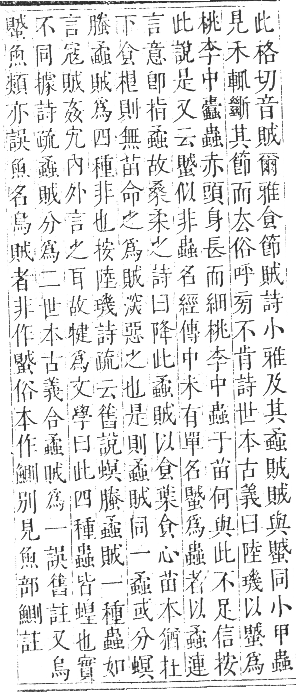 此格切音賊爾雅食節賊詩小雅及其蟊賊賊與蠈同小甲蟲
見禾輒斷其節而去俗呼不肯詩世本古義曰陸璣以蠈爲
桃李中蠹蟲赤頭身長而細桃李中蟲于苗何與此不足信按
此說是又云蠈似非蟲名經傳中未有單名蠈爲蟲者以蟊連
言意卽指蟊故桑柔之詩曰降此蟊賊以食葉食心苗本猶在
下食根則無苗命之爲賊深惡之也是則蟊賊同一蟊或分螟
螣蟊賊爲四種非也按陸璣詩疏云舊說螟螣蟊賊一種蟲如
言寇賊姦宄內外言之耳故犍爲文學曰此四種蟲皆蝗也實
不同據詩疏蟊賊分爲二世本古義合蟊賊爲一誤舊註又烏
蠈魚類亦誤魚名烏賊者非作蠈俗本作鰂別見魚部鰂註